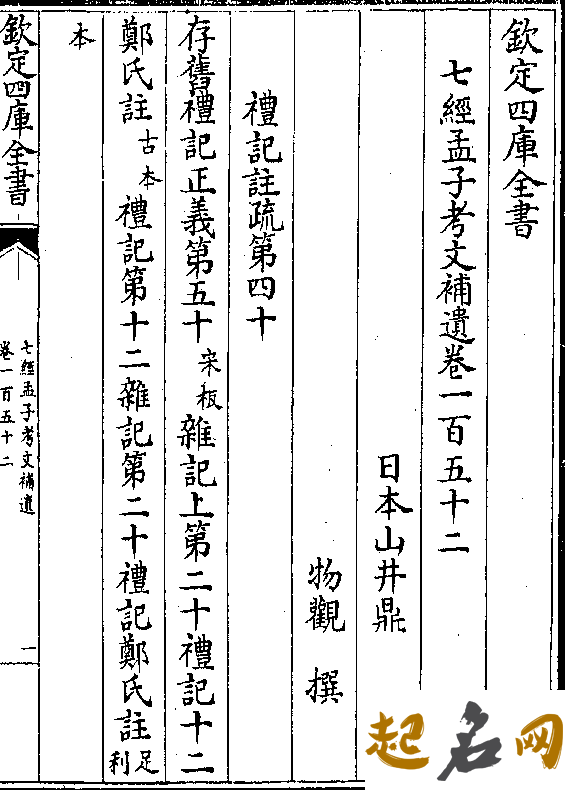 欽定四庫全書
七經孟子考文補遺卷一百五十二
日本山井鼎
物觀 撰
禮記註疏第四十
存舊禮記正義第五十宋板雜記上第二十禮記十二
鄭氏註古本禮記第十二雜記第二十禮記鄭氏註足利
本
欽定四庫全書
七經孟子考文補遺
卷一百五十二
一
起名网